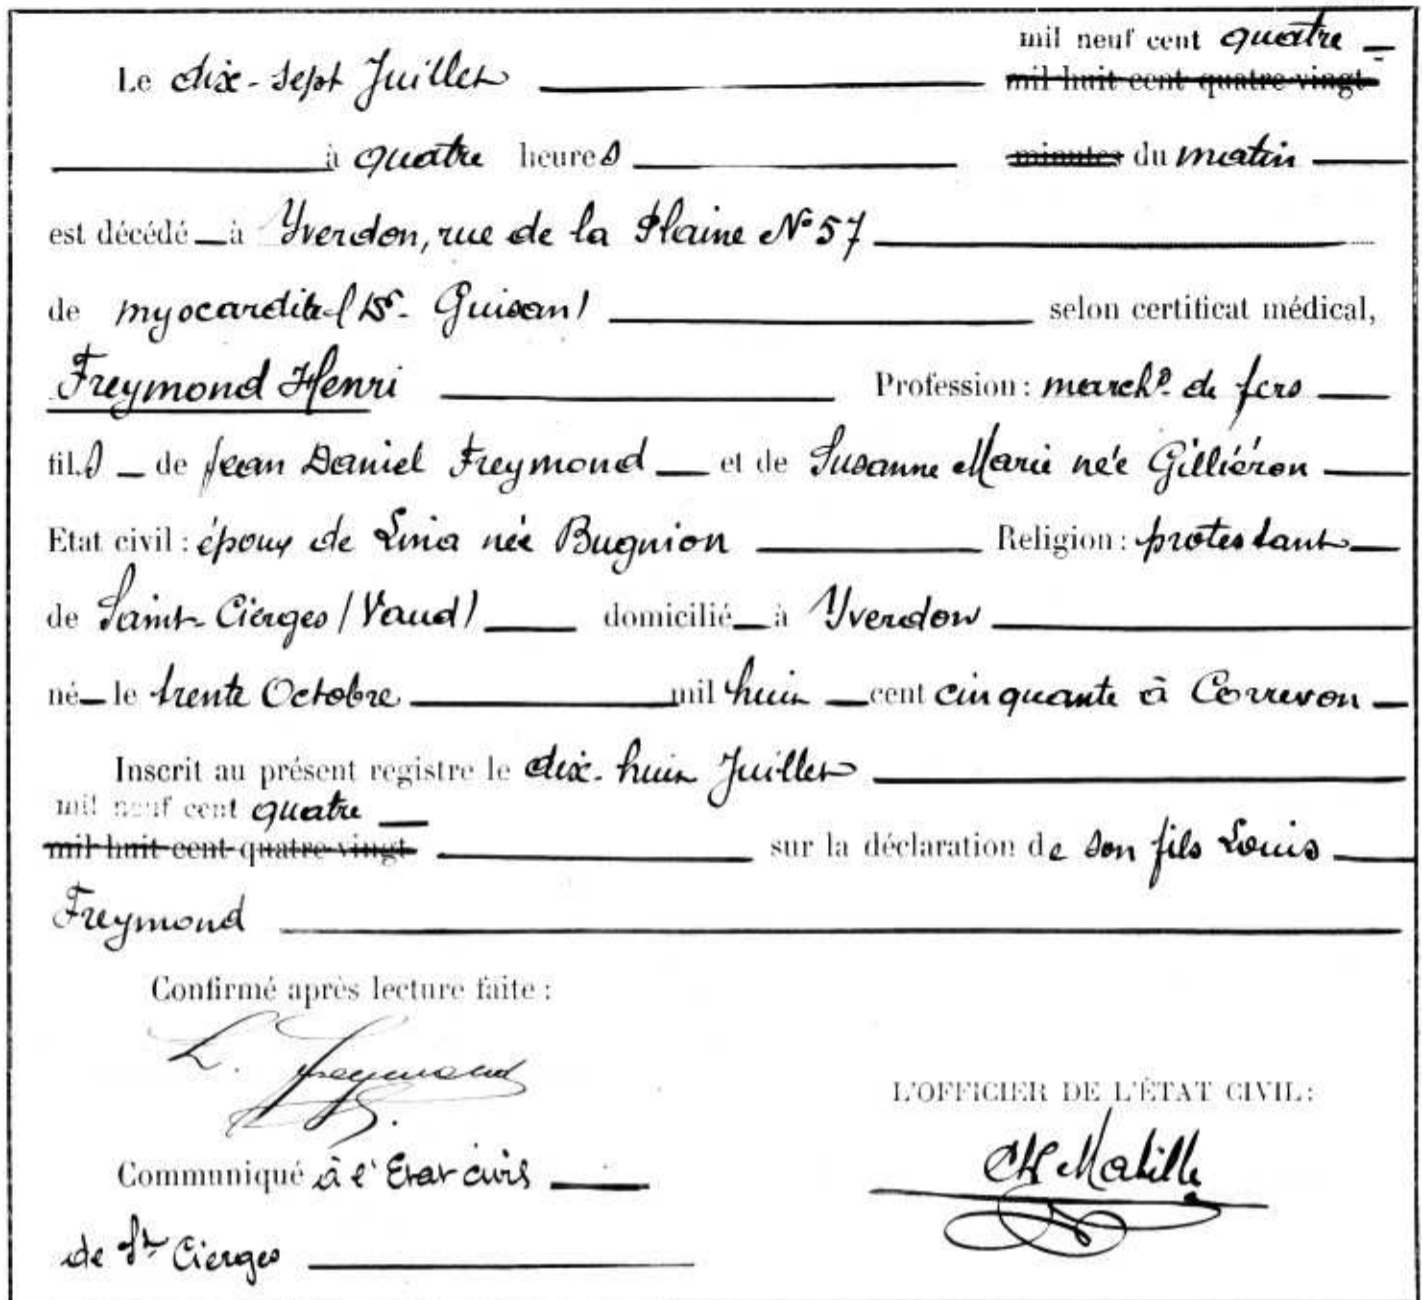 mil neuf cent quatre
Le dix-sept Juillet mil huit cent quatre-vingt
à quatre heures minutes du matin
est décédé à Yverdon, rue de la Plaine N° 57
de myocardite (Dr. Guisan) selon certificat médical,
Freymond Henri Profession : marchd. de fers
fils de Jean Daniel Freymond et de Susanne Marie née Gilliéron
Etat civil : époux de Lina née Bugnion Religion : protestant
de Saint-Cierges (Vaud) domicilié à Yverdon
né le trente Octobre mil huit cent cinquante à Correvon
Inscrit au présent registre le dix-huit Juillet
mil neuf cent quatre
mil huit cent quatre-vingt sur la déclaration de son fils Louis
Freymond
Confirmé après lecture faite :
L. Freymond
L'OFFICIER DE L'ÉTAT CIVIL :
Communiqué à l'Etat civil
de St Cierges